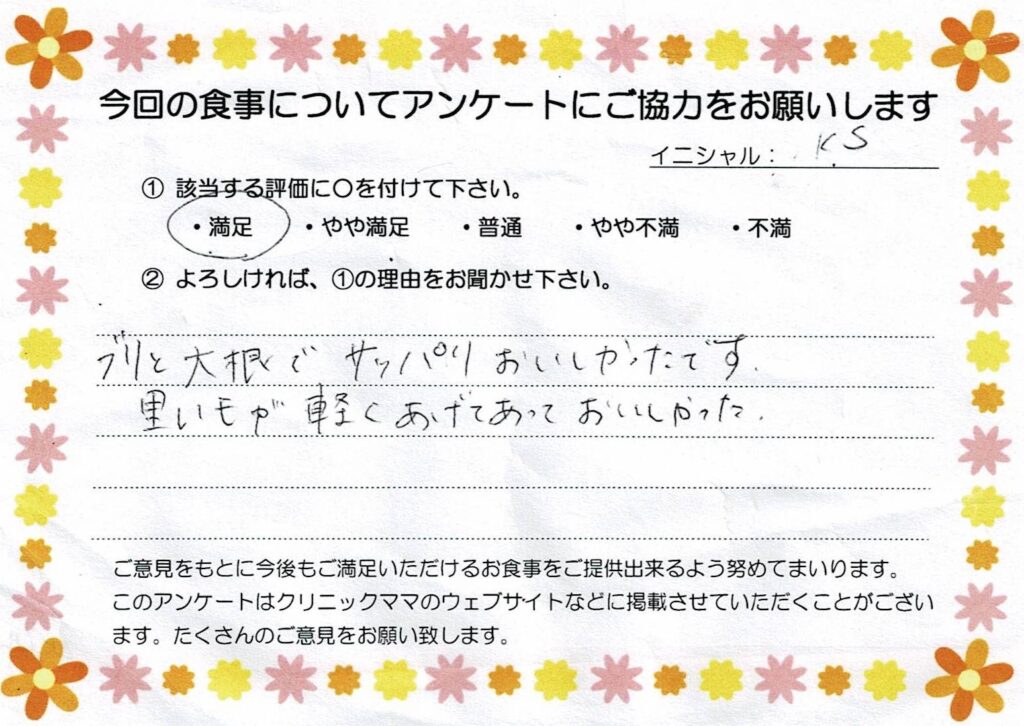 今回の食事についてアンケートにご協力をお願いします
イニシャル： K.S
① 該当する評価に〇を付けて下さい。
・満足 ・やや満足 ・普通 ・やや不満 ・不満
② よろしければ、①の理由をお聞かせ下さい。
ブリと大根で サッパリ おいしかったです.
里いもが 軽くあげてあって おいしかった.
ご意見をもとに今後もご満足いただけるお食事をご提供出来るよう努めてまいります。
このアンケートはクリニックママのウェブサイトなどに掲載させていただくことがござい
ます。たくさんのご意見をお願い致します。